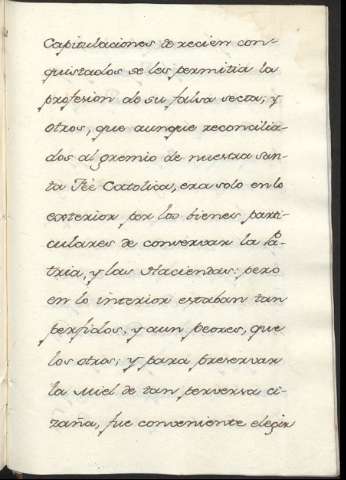 Capitulaciones de recien con-
quistados se les permitia la
profesion de su falsa secta, y
otros, que aunque reconcilia-
dos al gremio de nuestra san-
ta Fée Catolica, era solo en lo
exterior por los bienes parti-
culares de conservar la Pa-
tria, y las Haciendas: pero
en lo interior estaban tan
perfidos, y aun peores, que
los otros; y para preservar
la Miel de tan perversa ci-
zaña, fue conveniente elegir